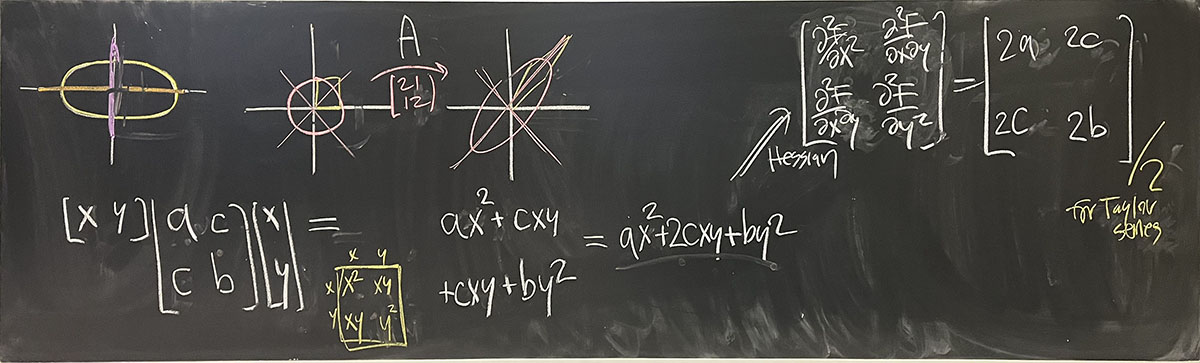 A
[2 1
1 2]
[∂²F/∂x² ∂²F/∂x∂y
∂²F/∂x∂y ∂²F/∂y²] = [2a 2c
2c 2b]
/2
Hessian
for Taylor
series
[x y] [a c
c b] [x
y] =
ax² + cxy
+cxy + by²
= ax²+2cxy+by²
x y
x x² xy
y xy y²